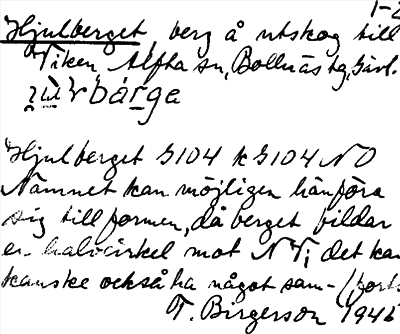 1-2
Hjulberget, berg å utskog till
Viken Alfta sn, Bollnäs tg, Gävl.
Hjulberget G104 k G104 NO
Namnet kan möjligen hänföra
sig till formen, då berget bildar
en halvcirkel mot NV; det kan
kanske också ha något sam- (forts
T. Birgerson 1946